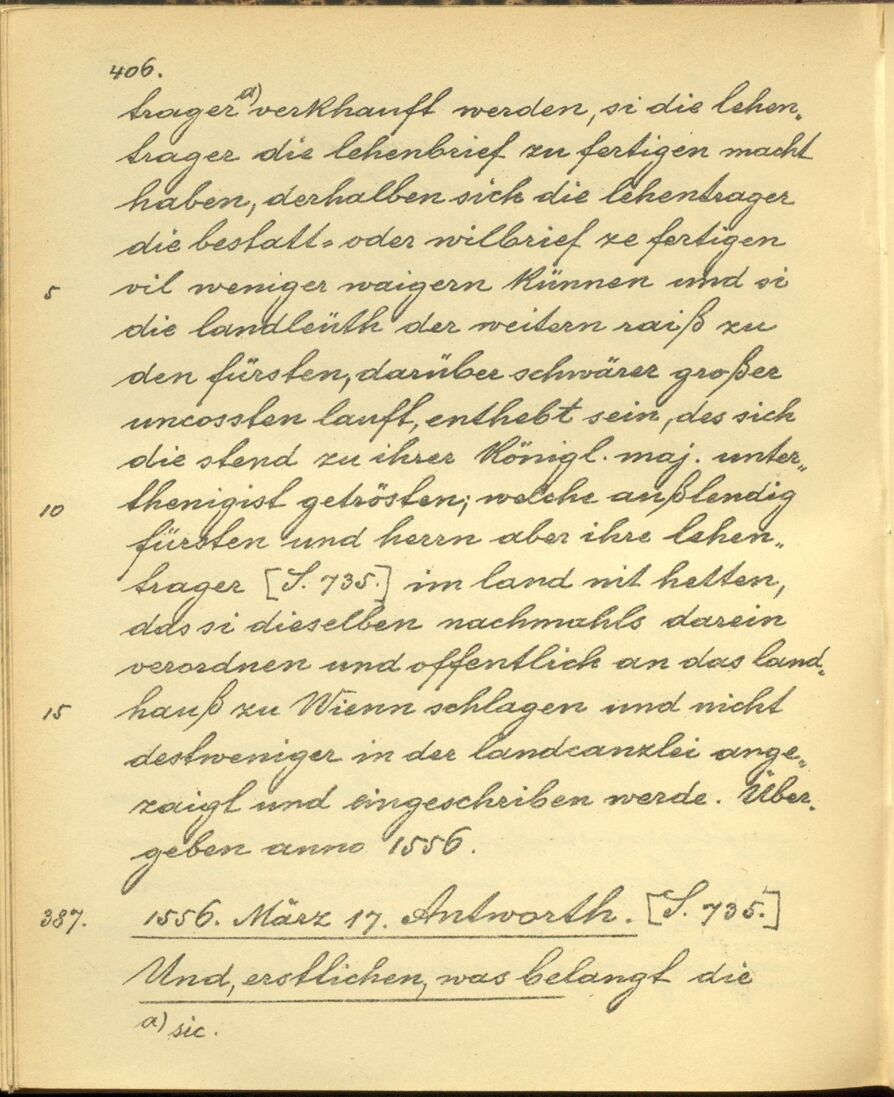 406.
trager a) verkhauft werden, si die lehen„
trager die lehenbrief zu fertigen macht
haben, derhalben sich die lehentrager
die bestatt= oder wilbrief ze fertigen
5 vil weniger waigern künnen und si
die landleüth der weitern raiß zu
den fürsten, darüber schwärer großer
uncossten lauft, enthebt sein, des sich
die stend zu ihrer königl. maj. unter„
10 thenigist getrösten; welche außlendig
fürsten und herrn aber ihre lehen„
trager [S. 735.] im land nit hetten,
das si dieselben nachmahls darein
verordnen und offentlich an das land„
15 hauß zu Wienn schlagen und nicht
destweniger in der landcanzlei ange„
zaigt und eingeschriben werde. Über„
geben anno 1556.
387. 1556. März 17. Antworth. [S. 735.]
Und, erstlichen, was belangt die
a) sic.